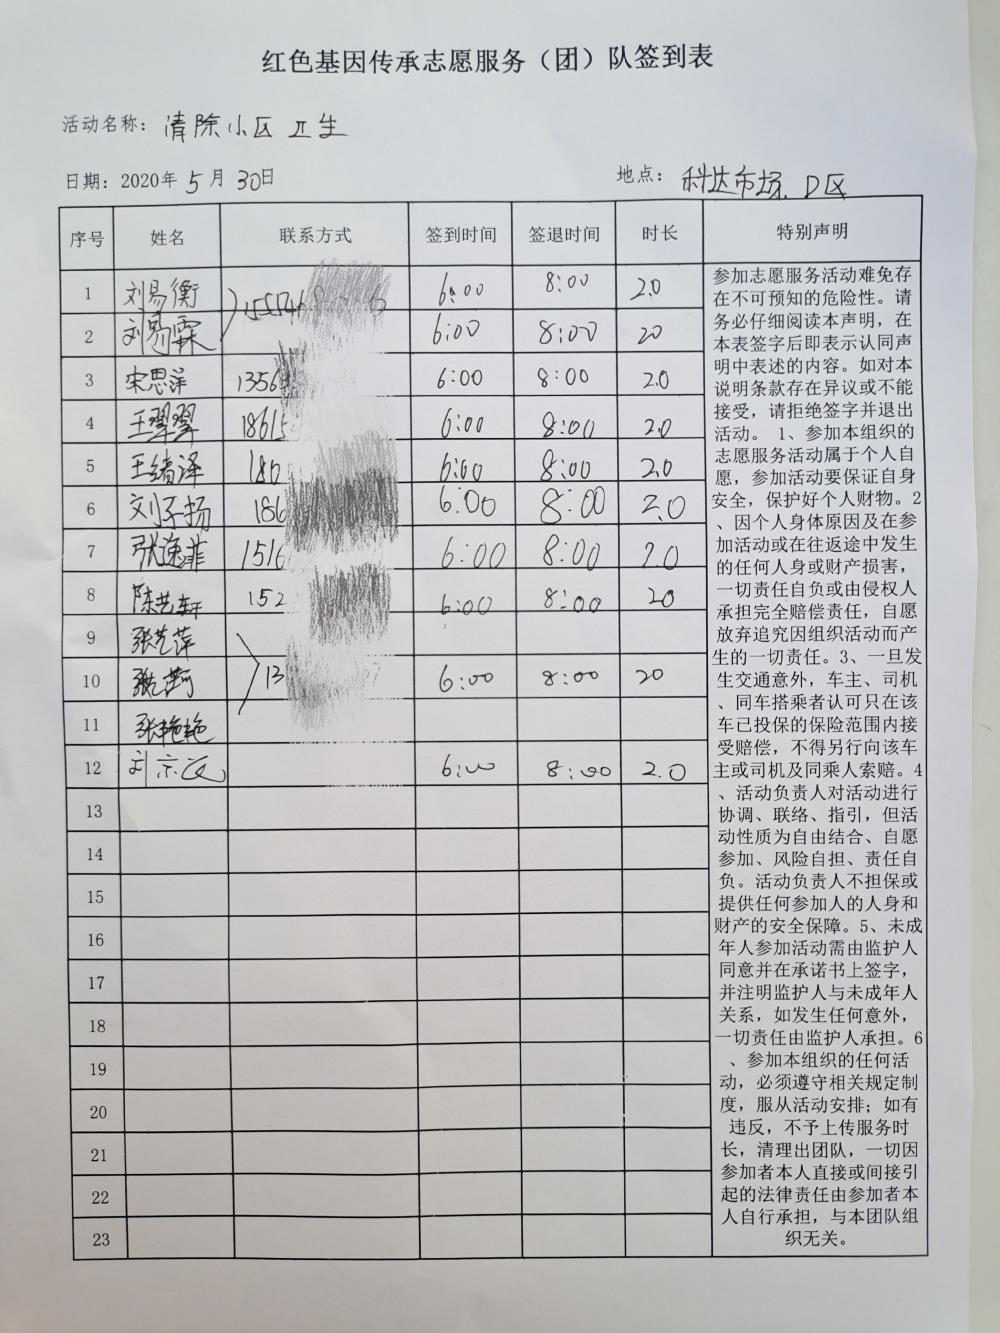 红色基因传承志愿服务（团）队签到表
活动名称：清除小区卫生
日期：2020年5月30日
地点：科达市场、D区
序号 姓名 联系方式 签到时间 签退时间 时长 特别声明
1 刘易衡 6:00 8:00 2.0
2 刘易霖 6:00 8:00 20
3 宋思萍 1356 6:00 8:00 2.0
4 王翠翠 18615 6:00 8:00 2.0
5 王绪泽 180 6:00 8:00 2.0
6 刘子扬 186 6:00 8:00 2.0
7 张逸菲 1516 6:00 8:00 2.0
8 陈艺轩 152 6:00 8:00 20
9 张艺萍
10 13 6:00 8:00 20
11 张艳艳
12 6:00 8:00 2.0
13
14
15
16
17
18
19
20
21
22
23
参加志愿服务活动难免存
在不可预知的危险性。请
务必仔细阅读本声明，在
本表签字后即表示认同声
明中表述的内容。如对本
说明条款存在异议或不能
接受，请拒绝签字并退出
活动。 1、参加本组织的
志愿服务活动属于个人自
愿，参加活动要保证自身
安全，保护好个人财物。2
、因个人身体原因及在参
加活动或在往返途中发生
的任何人身或财产损害，
一切责任自负或由侵权人
承担完全赔偿责任，自愿
放弃追究因组织活动而产
生的一切责任。3、一旦发
生交通意外，车主、司机
、同车搭乘者认可只在该
车已投保的保险范围内接
受赔偿，不得另行向该车
主或司机及同乘人索赔。4
、活动负责人对活动进行
协调、联络、指引，但活
动性质为自由结合、自愿
参加、风险自担、责任自
负。活动负责人不担保或
提供任何参加人的人身和
财产的安全保障。5、未成
年人参加活动需由监护人
同意并在承诺书上签字，
并注明监护人与未成年人
关系，如发生任何意外，
一切责任由监护人承担。6
、参加本组织的任何活
动，必须遵守相关规定制
度，服从活动安排；如有
违反，不予上传服务时
长，清理出团队，一切因
参加者本人直接或间接引
起的法律责任由参加者本
人自行承担，与本团队组
织无关。